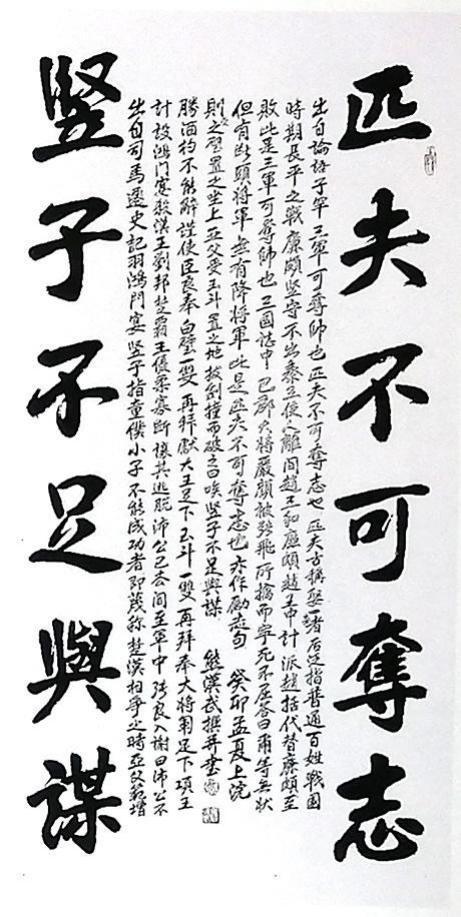 匹夫不可奪志
出自論語子罕三軍可奪帥也匹夫不可奪志也匹夫古稱一者后泛指普通百姓戰國
時期長平之戰廉頗堅守不出秦王使人離間趙王和廉頗趙王中計派趙括代替廉頗至
敗此是三軍可奪帥也三國誌中巴郡大將嚴顏被張飛所擒而寧死不屈答曰爾等無狀
但有斷頭將軍無有降將軍此是匹夫不可奪志也亦作勵志句 癸卯孟夏上浣
豎子不足與謀
出自司馬遷史記羽鴻門宴豎子指童僕小子不能成功者即蔑稱楚漢相爭之時亞父範增
計設鴻門宴殺漢王劉邦楚霸王優柔寡斷讓其逃脫沛公已去間至軍中張良入謝曰沛公不
勝酒杓不能辭謹使臣良奉白璧一雙再拜獻大王足下玉斗一雙再拜奉大將軍足下項王
則受璧置之坐上亞父受玉斗置之地拔劍撞而破之曰唉豎子不足與謀 熊漢武撰并書